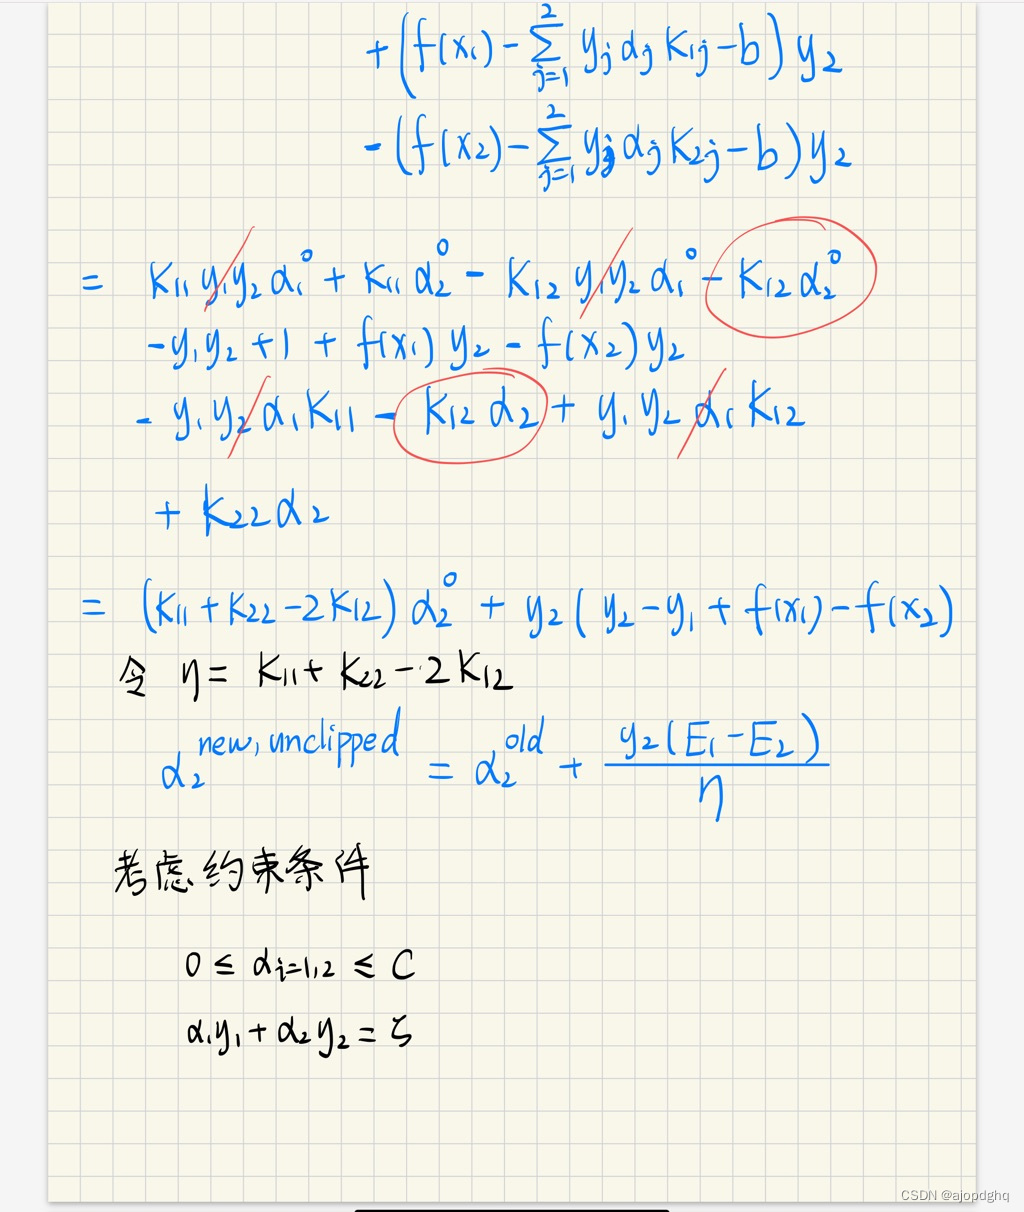 + (f(x₁) - ∑_{j=1}^{2} y_j α_j K_{1j} - b) y₂
- (f(x₂) - ∑_{j=1}^{2} y_j α_j K_{2j} - b) y₂
= K₁₁ y₁ y₂ α₁⁰ + K₁₁ α₂⁰ - K₁₂ y₁ y₂ α₁⁰ - K₁₂ α₂⁰
- y₁ y₂ + 1 + f(x₁) y₂ - f(x₂) y₂
- y₁ y₂ α₁ K₁₁ - K₁₂ α₂ + y₁ y₂ α₁ K₁₂
+ K₂₂ α₂
= (K₁₁ + K₂₂ - 2K₁₂) α₂⁰ + y₂ ( y₂ - y₁ + f(x₁) - f(x₂) )
令 η = K₁₁ + K₂₂ - 2K₁₂
α₂^{new, unclipped} = α₂^{old} + \frac{y₂(E₁ - E₂)}{η}
考虑约束条件
0 ≤ α_{i=1,2} ≤ C
α₁y₁ + α₂y₂ = ζ
CSDN @ajopdghq